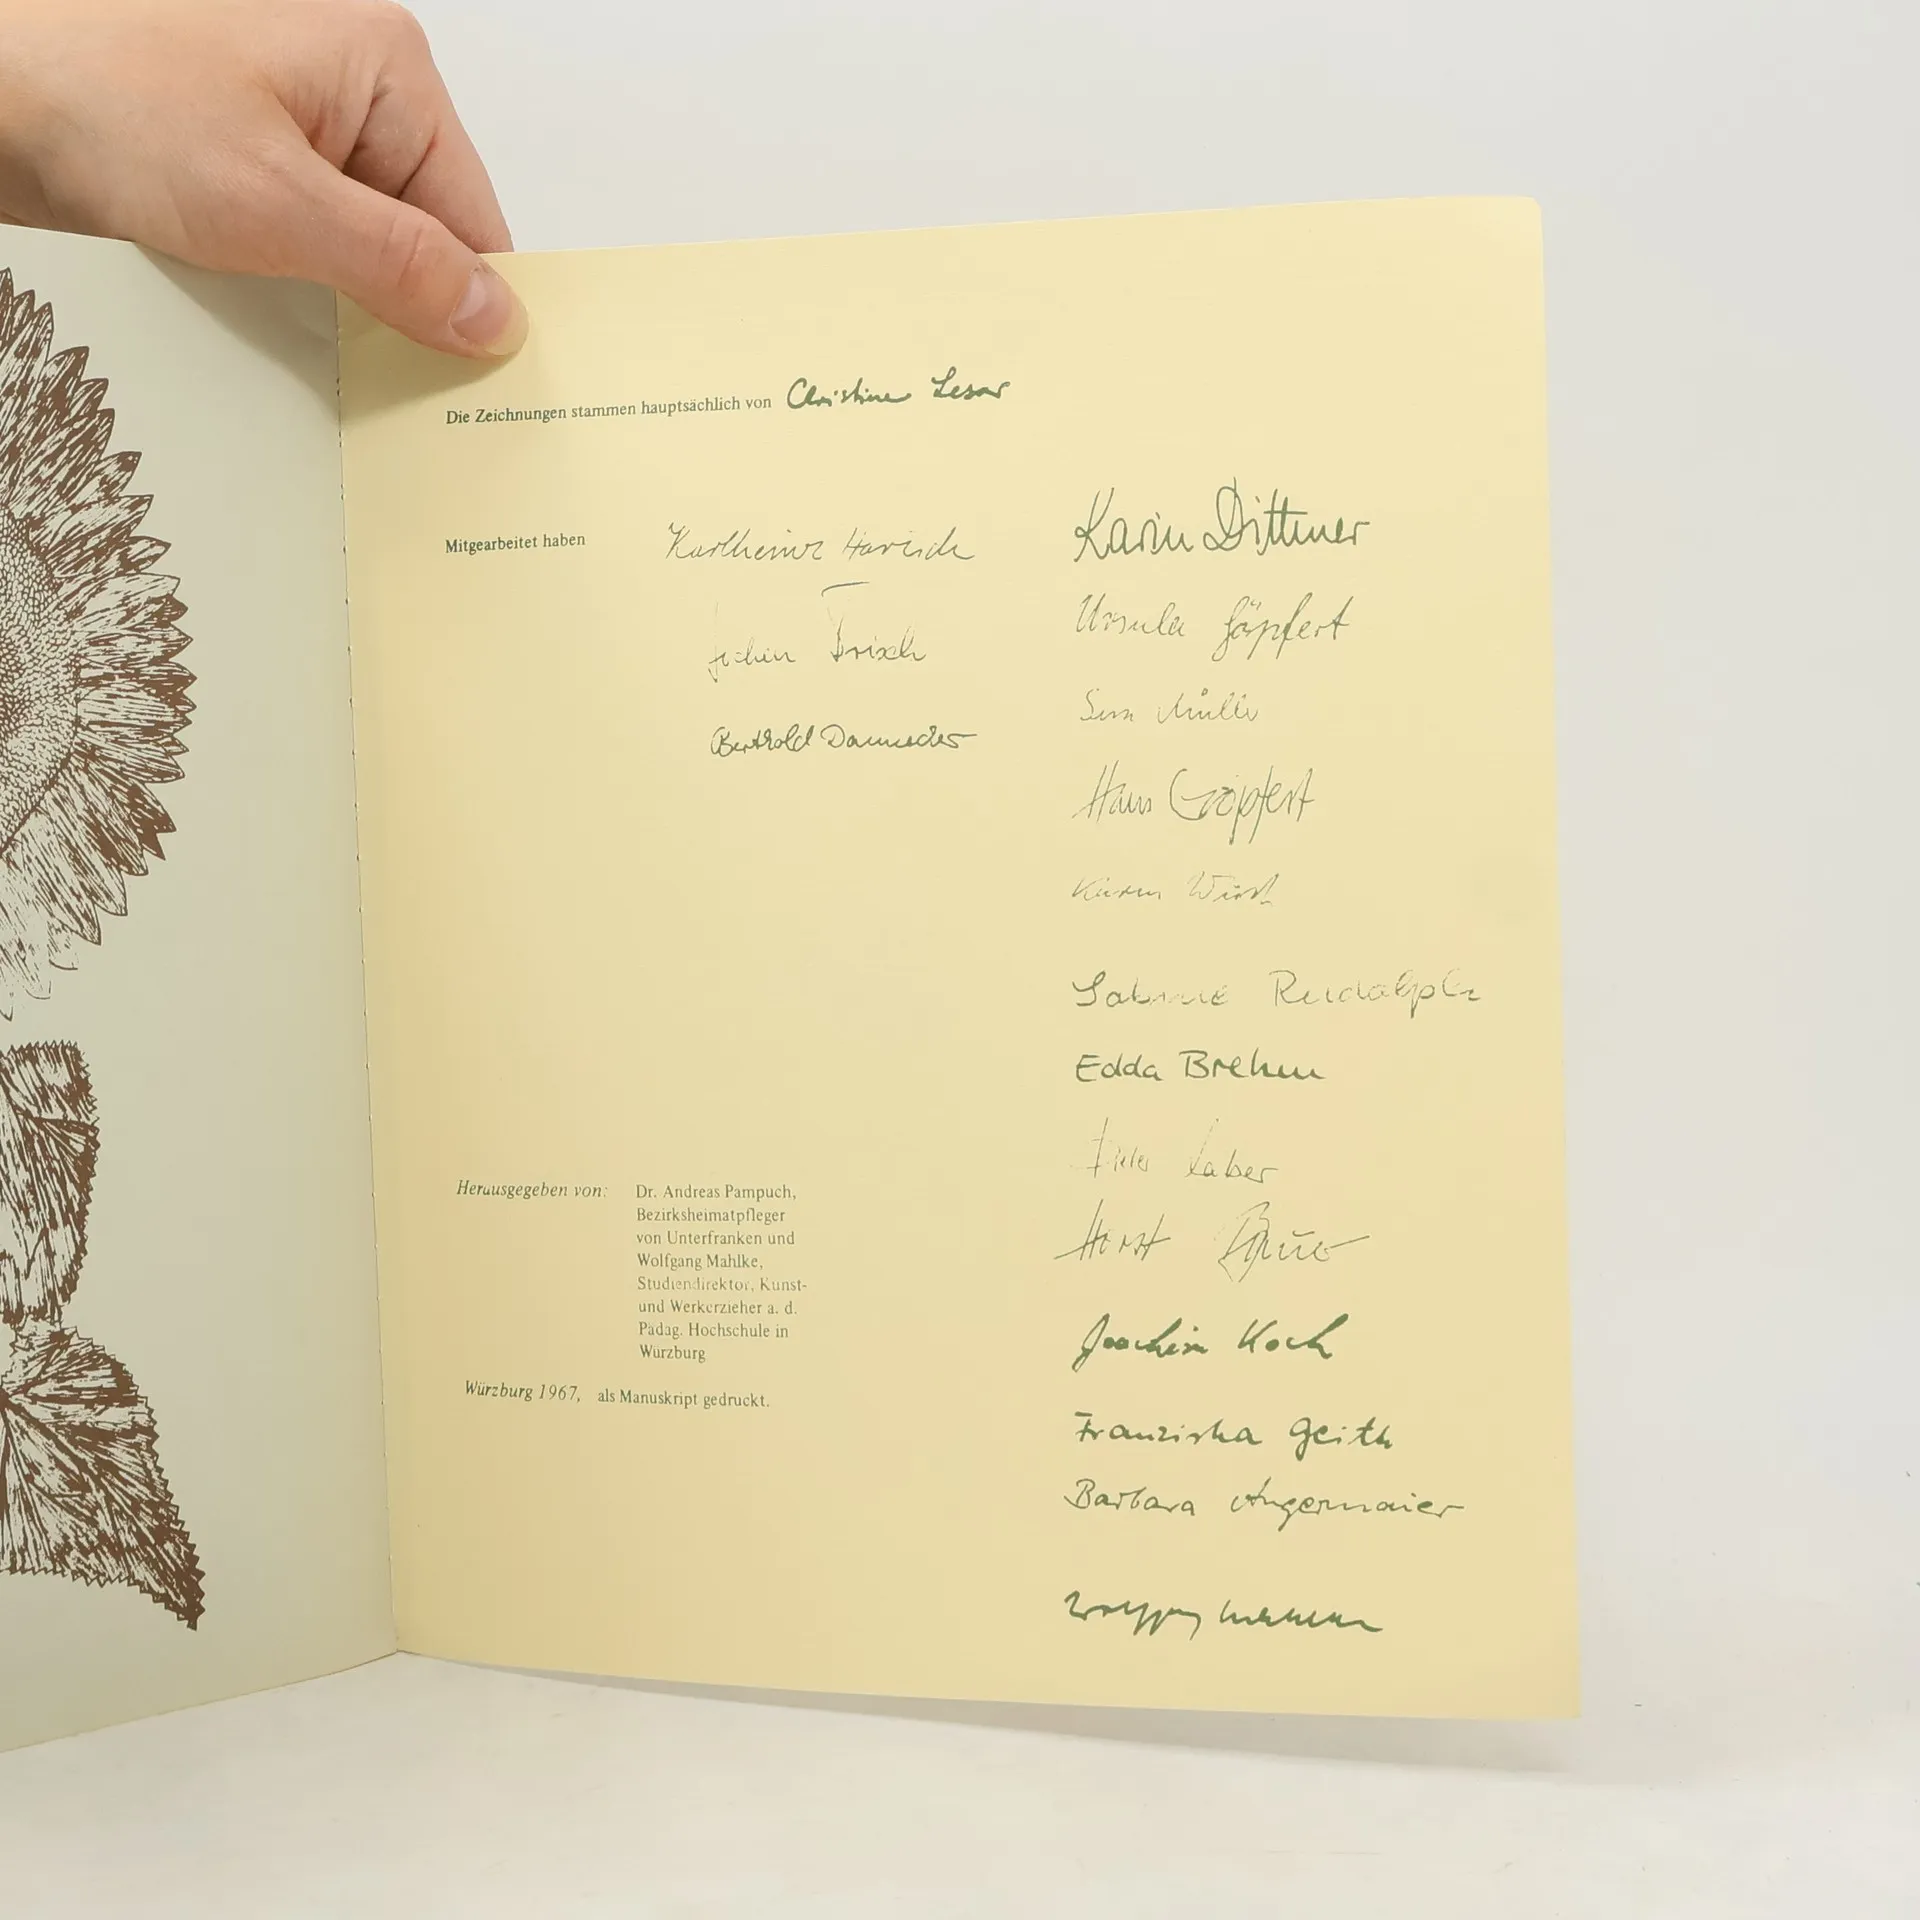 Die Zeichnungen stammen hauptsächlich von Christine Lesar
Mitgearbeitet haben
Karlheinz Harisch
Jochen Frisch
Berthold Dannecker
Karin Dittmer
Ursula Göpfert
Müller
Hans Göpfert
Karin
Sabine Rudolph
Edda Brehm
Dieter Laber
Horst Bauer
Joachim Koch
Franziska Geith
Barbara Angermaier
Wolfgang
Herausgegeben von: Dr. Andreas Pampuch,
Bezirksheimatpfleger
von Unterfranken und
Wolfgang Mahlke,
Studiendirektor, Kunst-
und Werkerzieher a. d.
Pädag. Hochschule in
Würzburg
Würzburg 1967, als Manuskript gedruckt.